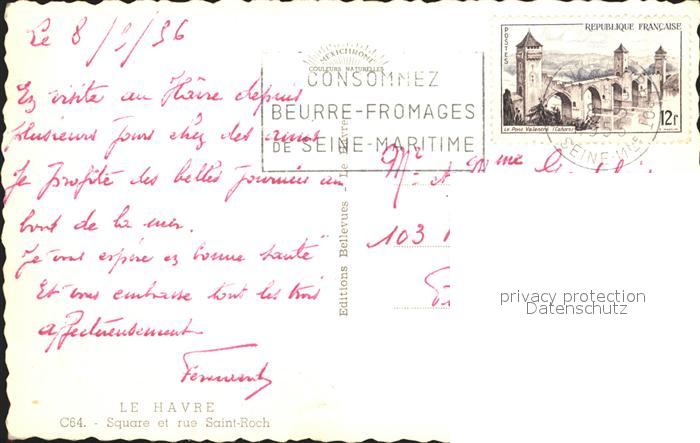 Le 8/9/56
En visite au Hâvre depuis
plusieurs jours chez des amis
Je profite des belles journées au
bord de la mer.
Je vous espère en bonne santé
Et vous embrasse tout les trois
affectueusement
LE HAVRE
C64. - Square et rue Saint-Roch
Editions Bellevues - Le Havre
MEXICHROME
COULEURS NATURELLES
CONSOMMEZ
BEURRE-FROMAGES
DE SEINE-MARITIME
POSTES
REPUBLIQUE FRANÇAISE
Le Pont Valentré (Cahors)
12f
SEINE-Mme
Mr et Mme
103
privacy protection
Datenschutz